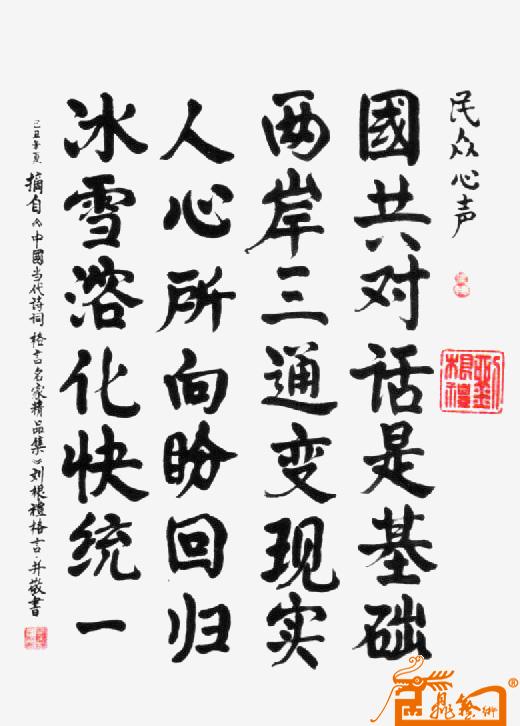 民众心声
國共对话是基础
两岸三通变现实
人心所向盼回归
冰雪溶化快统一
己丑年夏 摘自《中國当代詩词格言名家精品集》刘根禮格言·并敬書